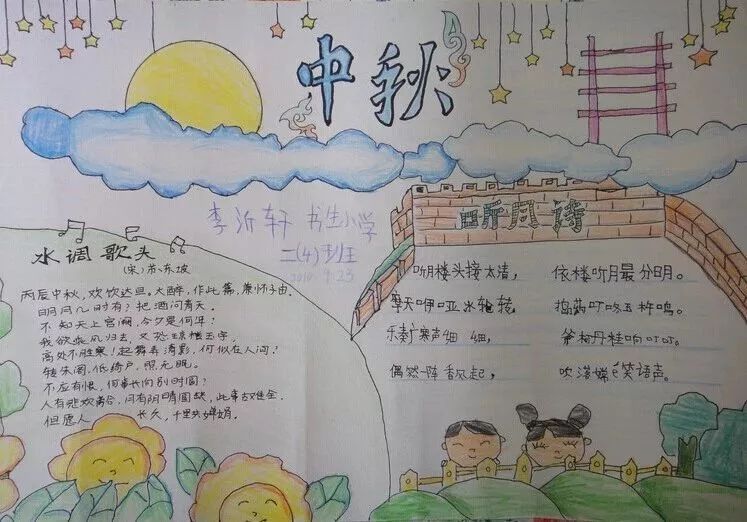 中秋
李沂轩 书生小学
二(4)班
2010.9.23
水调歌头
(宋)苏东坡
丙辰中秋,欢饮达旦,大醉,作此篇,兼怀子由。
明月几时有?把酒问青天。
不知天上宫阙,今夕是何年?
我欲乘风归去,又恐琼楼玉宇,
高处不胜寒!起舞弄清影,何似在人间?
转朱阁,低绮户,照无眠。
不应有恨,何事长向别时圆?
人有悲欢离合,月有阴晴圆缺,此事古难全。
但愿人 长久,千里共婵娟。
听月诗
听月楼头接太清, 依楼听月最分明。
摩天咿哑冰轮转, 捣药叮咚玉杵鸣。
乐奏广寒声细细, 斧柯丹桂响叮叮。
偶然一阵香风起, 吹落嫦ε笑语声。